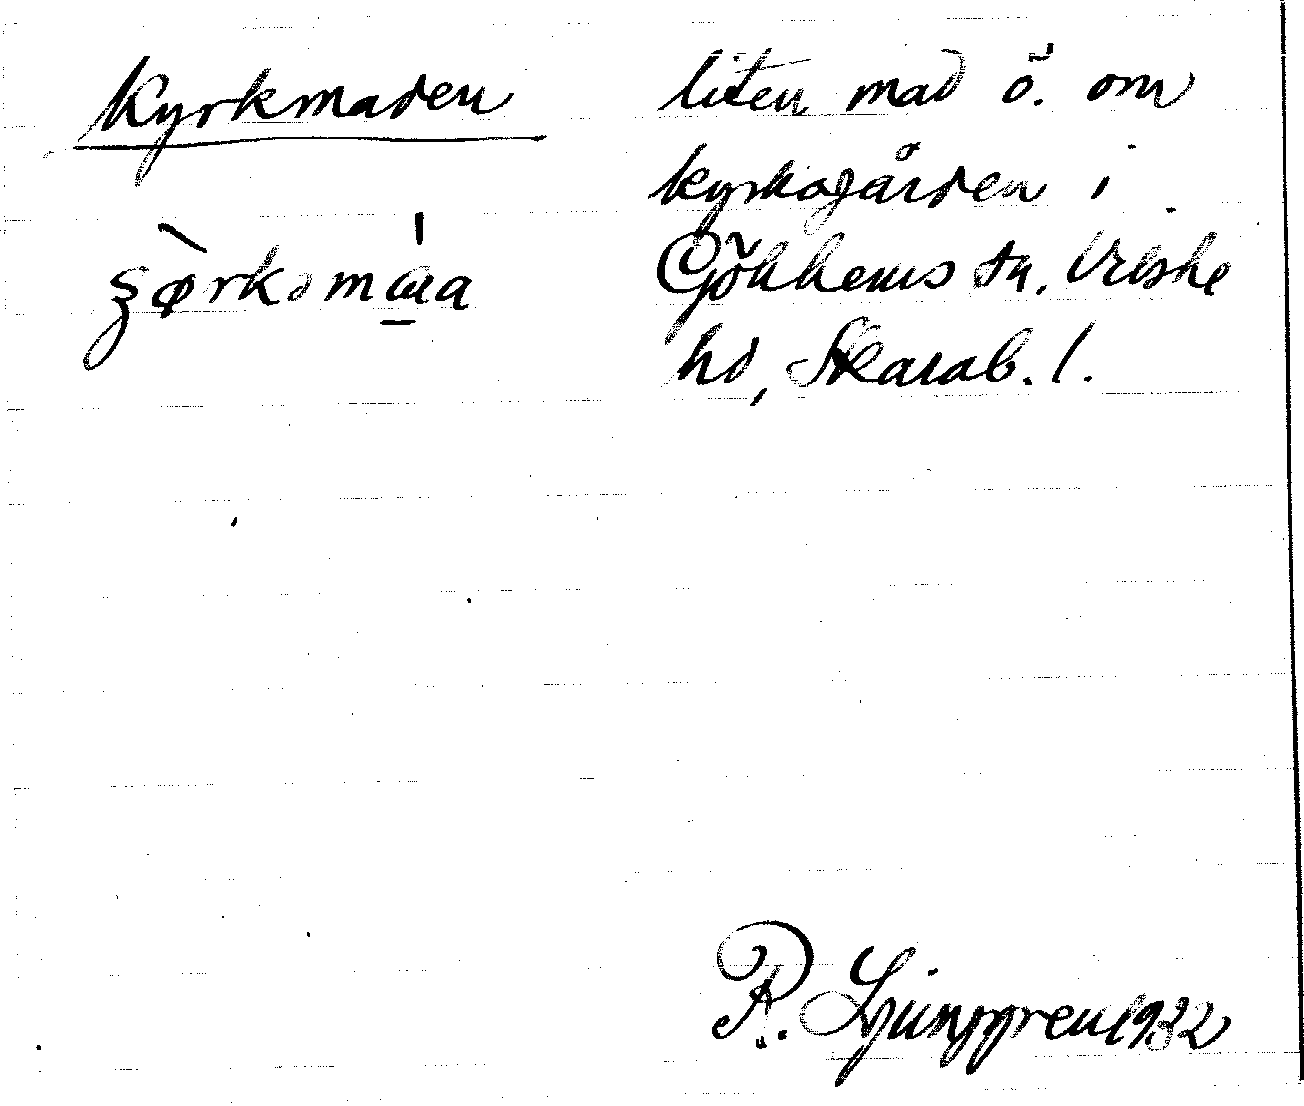 Kyrkmaden
liten mad ö. om
kyrkogården i
Gökhems sn. Vilske
hd, Skarab. l.
P. Ljunggren 1932